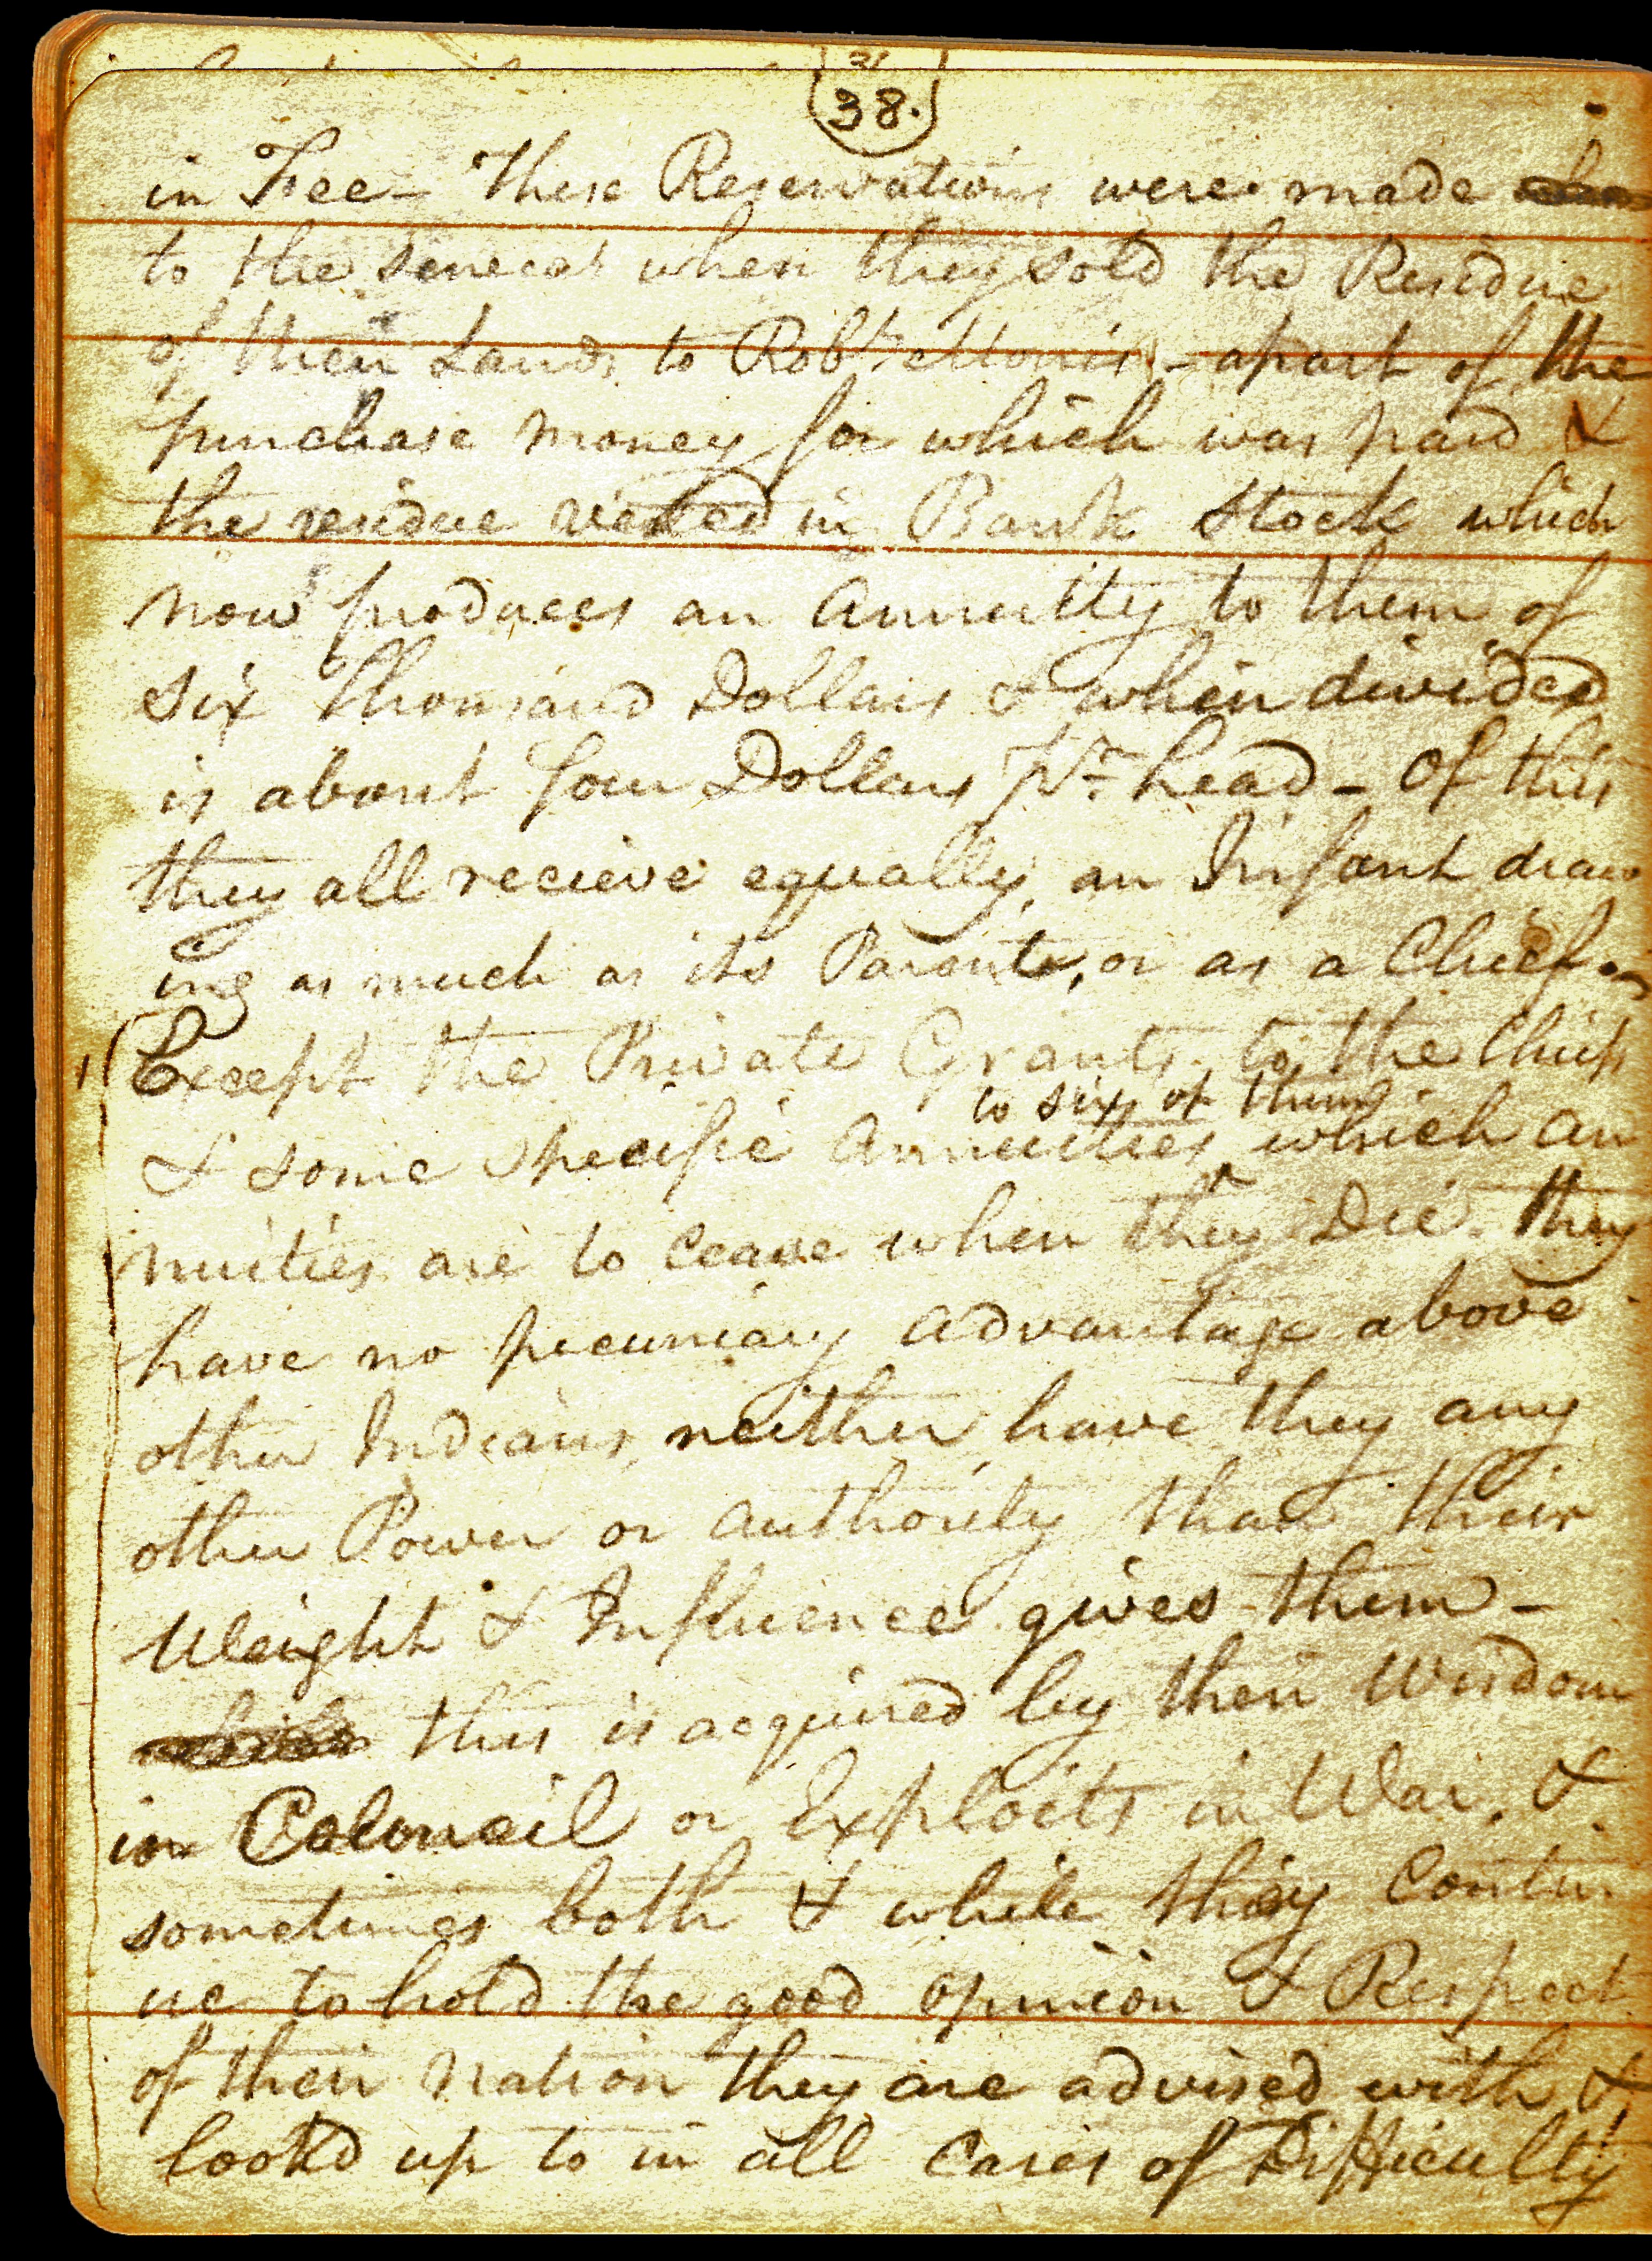 38.
in Fee - These Reservations were made
to the Senecas when they sold the Residue
of their Lands to Robt. Morris - a part of the
purchase money for which was paid &
the residue vested in Bank Stock which
now produces an Annuity to them of
Six Thousand Dollars & when divided
is about four Dollars Pr. head - Of this
they all recieve equally, an Infant draw
ing as much as its Parents, or as a Chief -
Except the Private Grants to the Chiefs
to six of them
& some specific Annuities which an
nuities are to cease when they Die. they
have no pecuniary advantage above
other Indians, neither have they any
other Power or authority than their
Weight & Influence gives them -
this is acquired by their Wisdom
in Council or Exploits in War, &
sometimes both & while they Contin
ue to hold the good opinion & Respect
of their Nation they are advised with &
look'd up to in all Cases of Difficulty